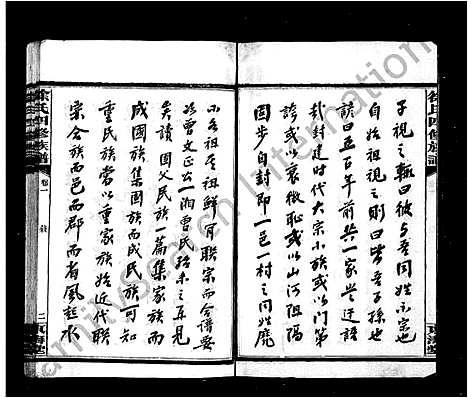 徐氏四修族譜
子視之輒曰彼與吾同姓不宗也
自始祖視之則曰皆吾子孫也
諺曰五百年前共一家豈迂語
哉封建時代大宗小族或以門第
誇或以寒微恥或以山河阻隔
固步自封即一邑一村之同姓庬
不各祖其祖鮮有聯宗而合譜要
曾文正公一湘曾氏
吾讀國父民族一篇集家族
成國族集國族而成民族可知
重民族當以重家族始近代聯
宗合族而邑而郡而省風起水
徐氏四修族譜
卷一
二
東海堂
FamilySearch International